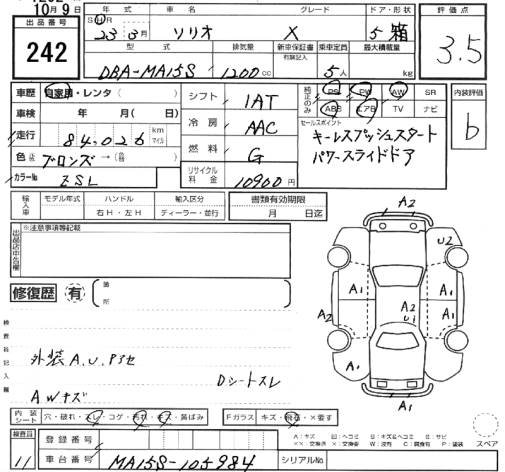 10月9日
出品番号
242
年式 車名 グレード ドア・形状
SHR 23年3月 ソリオ X 5 箱
型式 排気量 新車保証書 乗車定員 最大積載量
有無記入
DBA-MA15S 1200cc 5人 kg
評価点
3.5
車歴 自家用・レンタ( )
車検 年 月( )
走行 84,026 km マイル
色 ブロンズ→( )
カラーNo ZSL
シフト 1AT
冷房 AAC
燃料 G
リサイクル料金 10900円
純正のみ PS PW AW SR
ABS エアB TV ナビ
セールスポイント
キーレスプッシュスタート
パワースライドドア
内装評価
b
輸入車 モデル年式 ハンドル 輸入区分
年 右H・左H ディーラー・並行
書類有効期限
月 日迄
出品店申告欄 ※注意事項等記載
修復歴 有 箇所
検査員記入欄
外装A.U.Pスセ
Dシートスレ
AWキズ
A2
U2
A1 A1
A2 A2 U1
A1 A1
A1
内装シート 穴・破れ・スレ・コゲ・汚れ・キズ・黄ばみ
Fガラス キズ・飛石・×要す
検査員
11
登録番号
車台番号 MA15S-105984
シリアルNo
A:キズ U:ヘコミ B:キズ&ヘコミ S:サビ
××:交換済 X:交換要 W:波有 C:腐食有 P:塗装
スペア